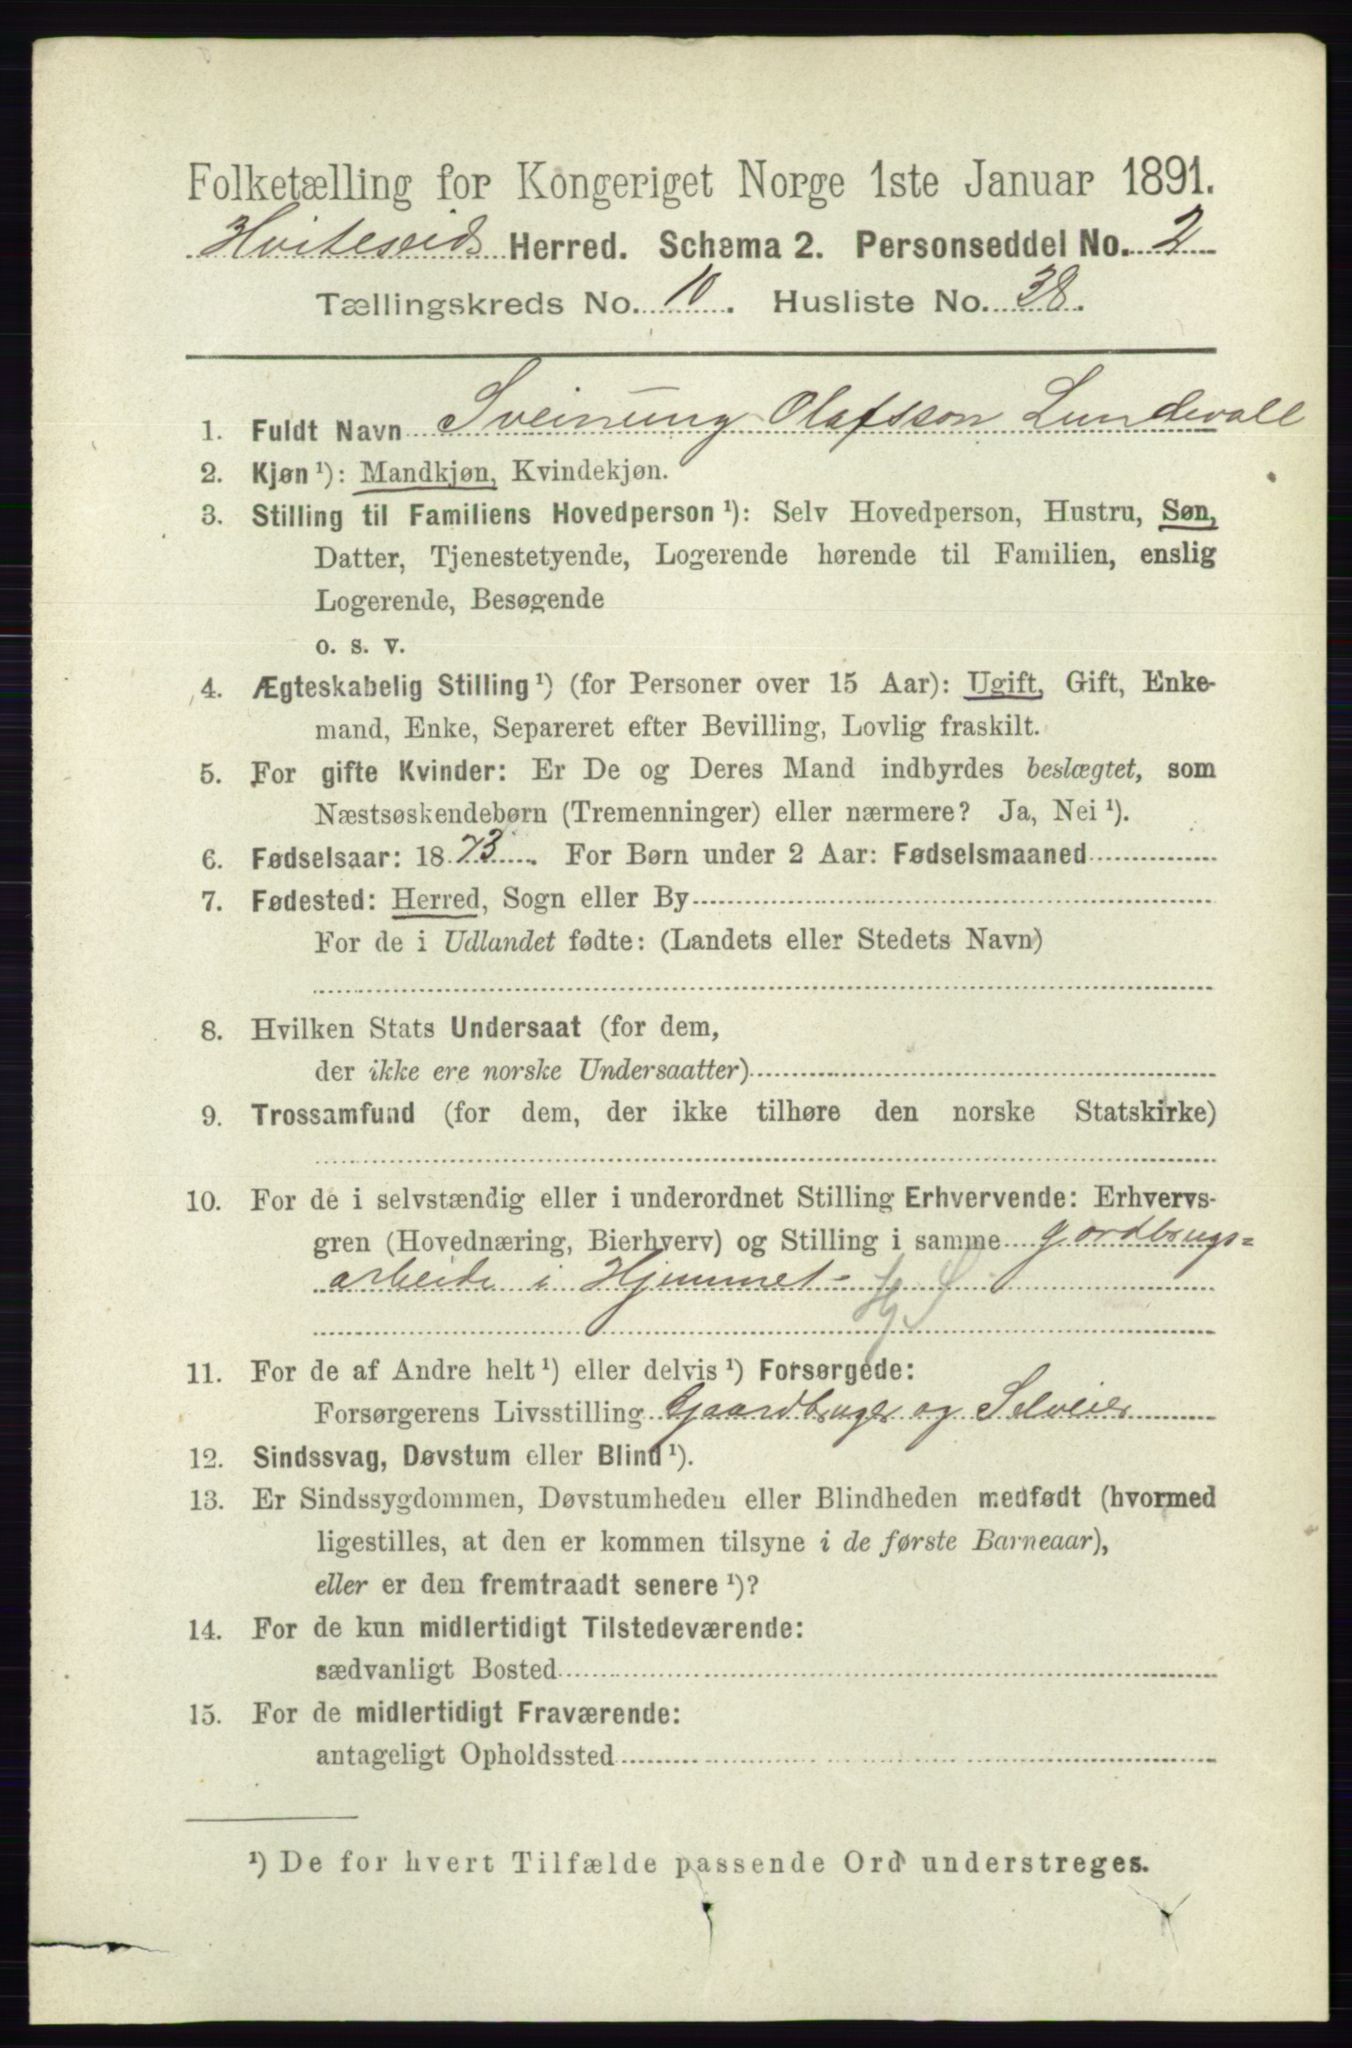 Folketælling for Kongeriget Norge 1ste Januar 1891.
Hviteseids Herred. Schema 2. Personseddel No. 2
Tællingskreds No. 10. Husliste No. 38.
1. Fuldt Navn Sveinung Olafsson Lundevall
2. Kjøn ¹): Mandkjøn, Kvindekjøn.
3. Stilling til Familiens Hovedperson ¹): Selv Hovedperson, Hustru, Søn,
Datter, Tjenestetyende, Logerende hørende til Familien, enslig
Logerende, Besøgende
o. s. v.
4. Ægteskabelig Stilling ¹) (for Personer over 15 Aar): Ugift, Gift, Enke-
mand, Enke, Separeret efter Bevilling, Lovlig fraskilt.
5. For gifte Kvinder: Er De og Deres Mand indbyrdes beslægtet, som
Næstsøskendebørn (Tremenninger) eller nærmere? Ja, Nei ¹).
6. Fødselsaar: 1873. For Børn under 2 Aar: Fødselsmaaned
7. Fødested: Herred, Sogn eller By
For de i Udlandet fødte: (Landets eller Stedets Navn)
8. Hvilken Stats Undersaat (for dem,
der ikke ere norske Undersaatter)
9. Trossamfund (for dem, der ikke tilhøre den norske Statskirke)
10. For de i selvstændig eller i underordnet Stilling Erhvervende: Erhvervs-
gren (Hovednæring, Bierhverv) og Stilling i samme gordbrugs=
arbeide i Hjemmet-
Hj S
11. For de af Andre helt ¹) eller delvis ¹) Forsørgede:
Forsørgerens Livsstilling Gaardbruger og Selveier
12. Sindssvag, Døvstum eller Blind ¹).
13. Er Sindssygdommen, Døvstumheden eller Blindheden medfødt (hvormed
ligestilles, at den er kommen tilsyne i de første Barneaar),
eller er den fremtraadt senere ¹)?
14. For de kun midlertidigt Tilstedeværende:
sædvanligt Bosted
15. For de midlertidigt Fraværende:
antageligt Opholdssted
¹) De for hvert Tilfælde passende Ord understreges.